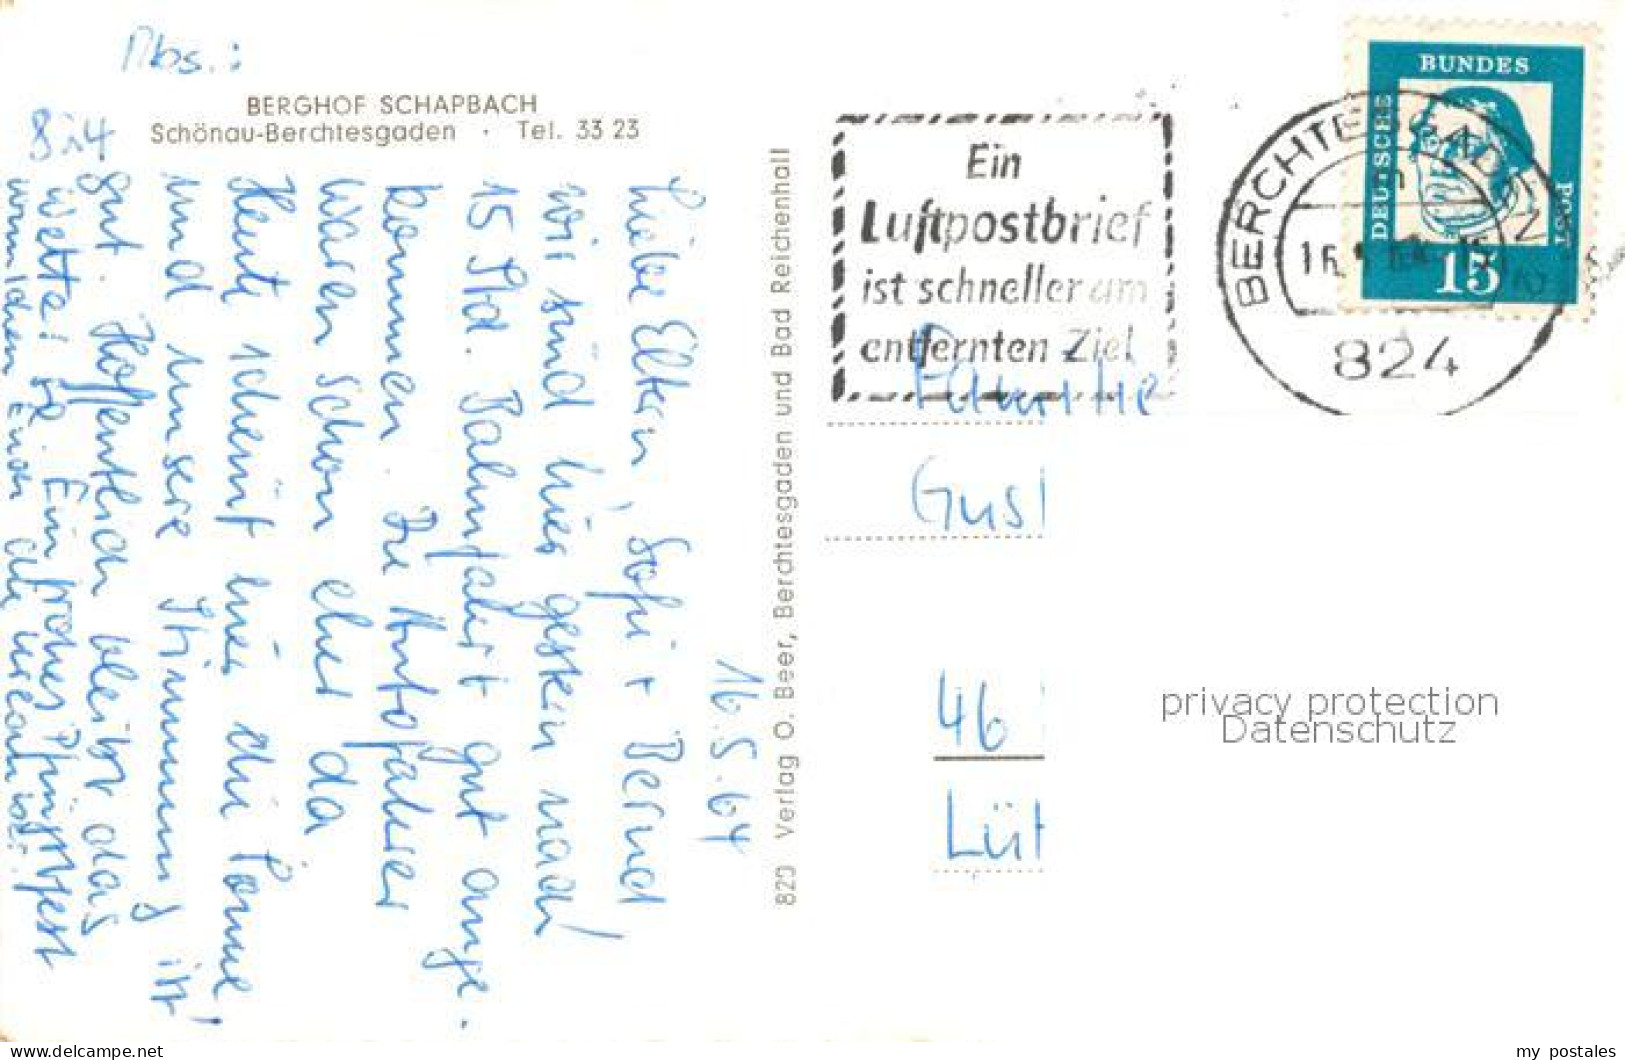 Abs.:
BERGHOF SCHAPBACH
Schönau-Berchtesgaden · Tel. 33 23
824
16.5.64
Liebe Eltern, Sofi + Bernd
wir sind hier gestern nach
15 Std. Bahnfahrt gut ange-
kommen. Die Autofahrer
waren schon eher da
Heute scheint hier die Sonne
und unsere Stimmung ist
gut. Hoffentlich bleibt das
Wetter so. Ein frohes Pfingstfest
wünschen Euch die
820 Verlag O. Beer, Berchtesgaden und Bad Reichenhall
Ein
Luftpostbrief
ist schneller am
entfernten Ziel
BERCHTESGADEN
824
DEUTSCHE
BUNDES
POST
15
Familie
Gus
46
Lü
privacy protection
Datenschutz
www.delcampe.net
my_postales